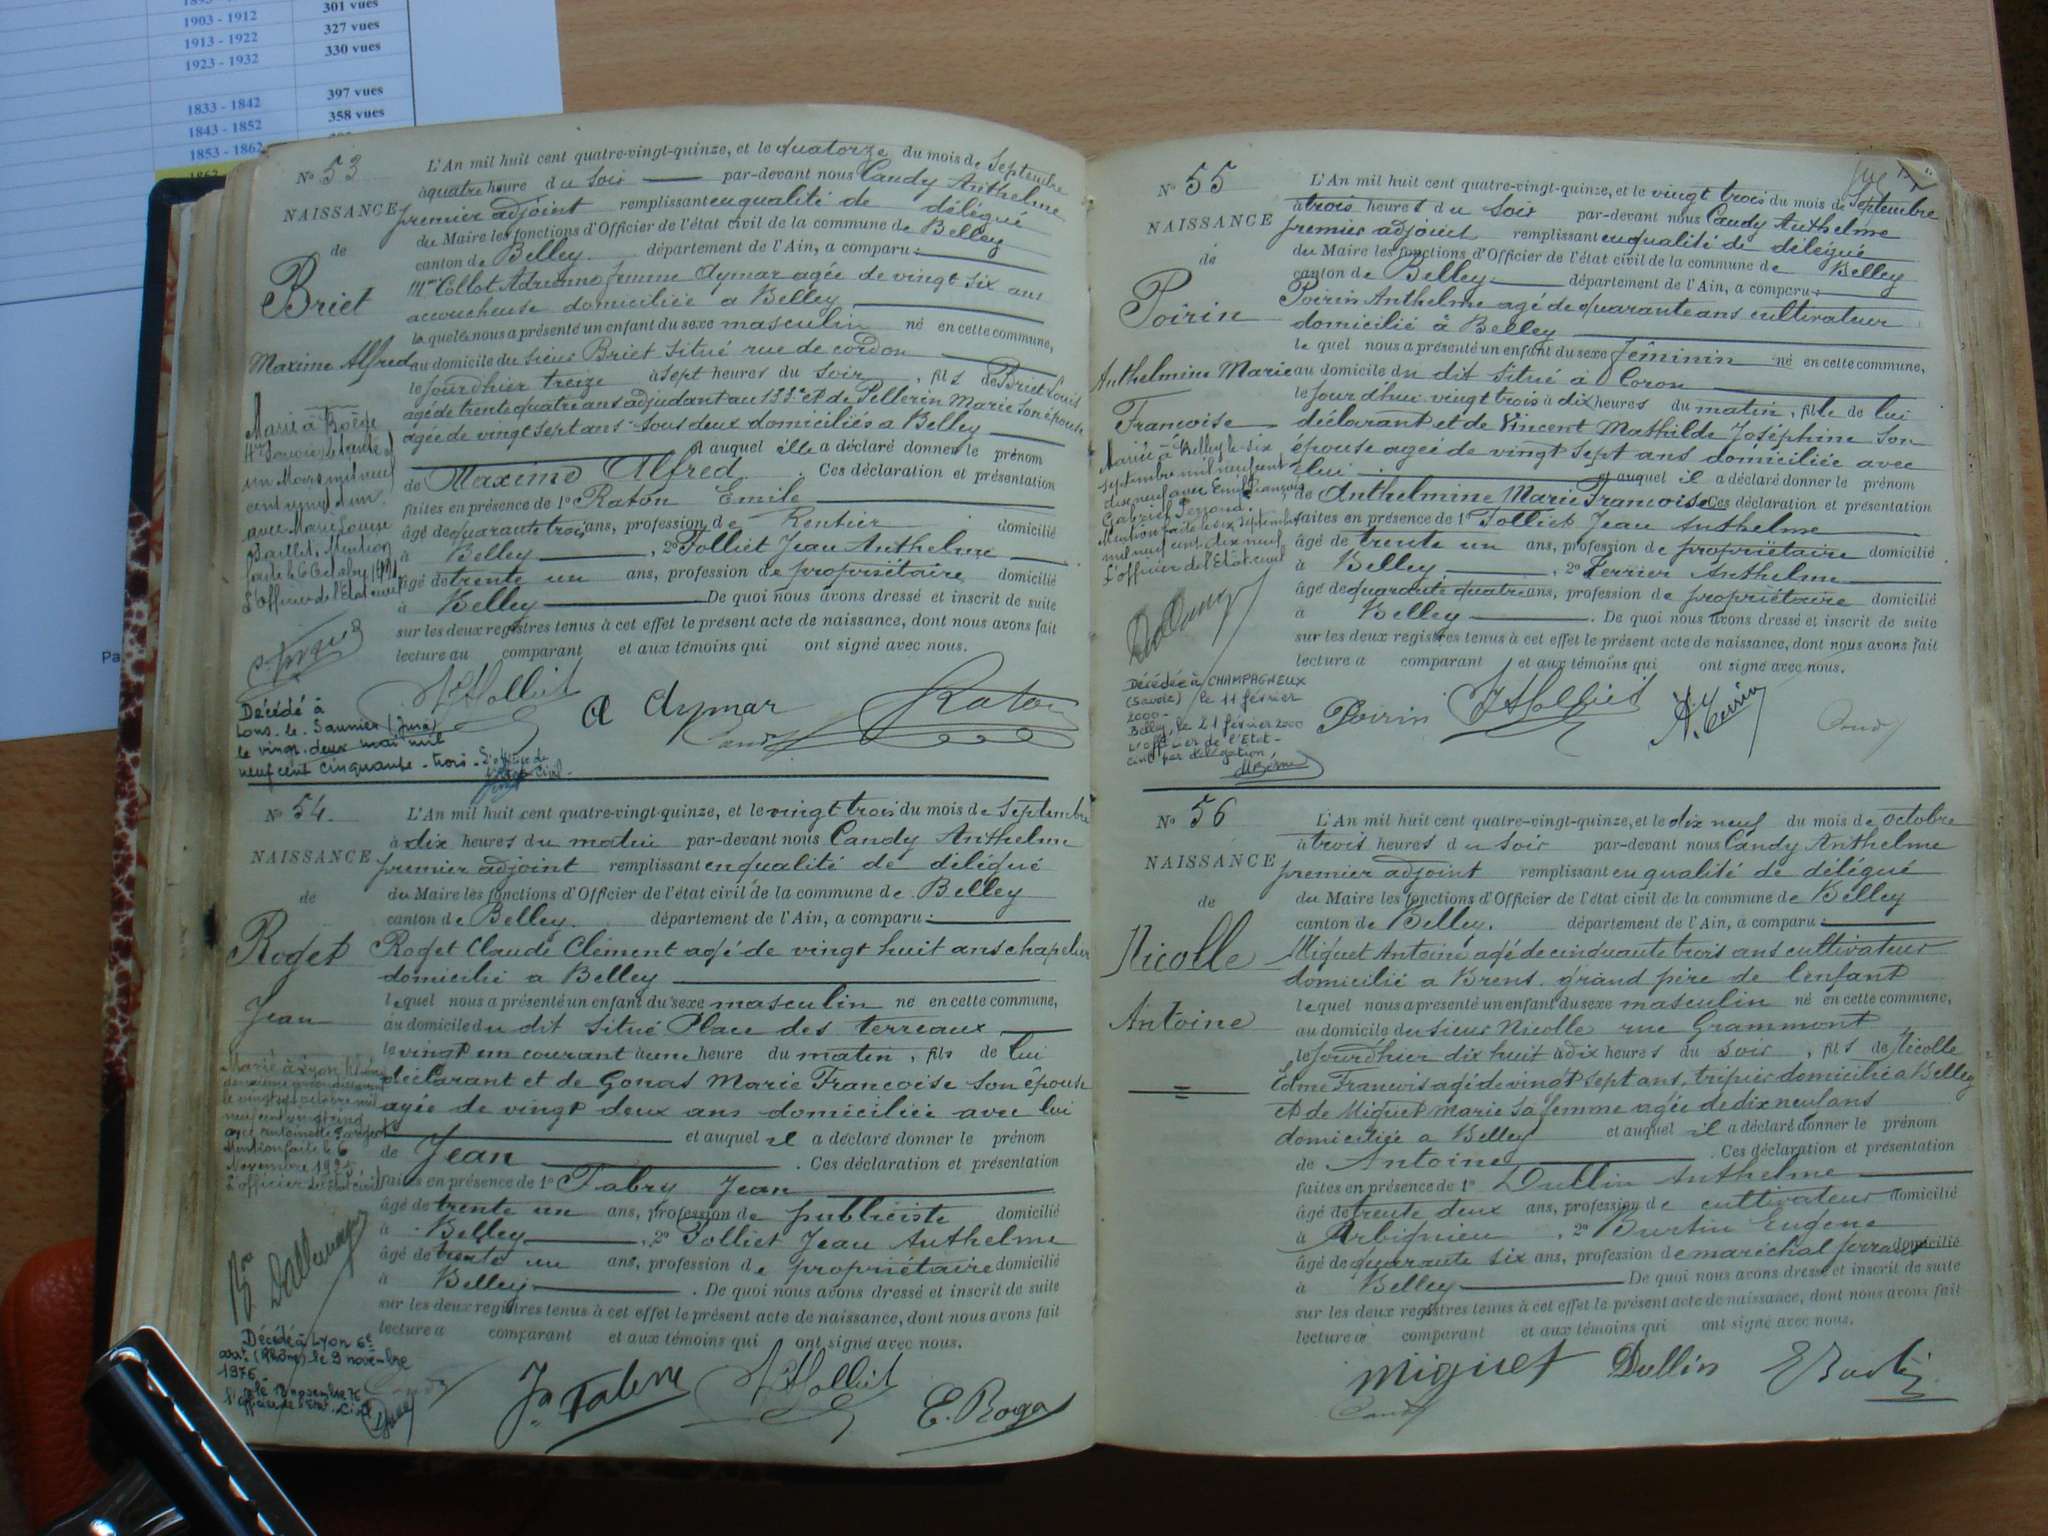 1903 - 1912 301 vues
1913 - 1922 327 vues
1923 - 1932 330 vues
1833 - 1842 397 vues
1843 - 1852 358 vues
1853 - 1862
No 53
NAISSANCE
de
Briet
Maxime Alfred
L'An mil huit cent quatre-vingt-quinze, et le quatorze du mois de Septembre
à quatre heure du soir par-devant nous Candy Anthelme
premier adjoint remplissant en qualité de délégué
du Maire les fonctions d'Officier de l'état civil de la commune de Belley
canton de Belley département de l'Ain, a comparu :
Mme Collot Adrienne femme Aymar agée de vingt six ans
accoucheuse domiciliée a Belley
la quelle nous a présenté un enfant du sexe masculin né en cette commune,
au domicile du sieur Briet situé rue de cordon
le jourdhier treize à sept heures du soir, fils de Briet Louis
agé de trente quatre ans adjudant au 133e et de Pellerin Marie son épouse
agée de vingt sept ans tous deux domiciliés a Belley
et auquel elle a déclaré donner le prénom
de Maxime Alfred. Ces déclaration et présentation
faites en présence de 1o Raton Emile
âgé de quarante trois ans, profession de Rentier domicilié
à Belley, 2o Tolliet Jean Anthelme
âgé de trente un ans, profession de propriétaire domicilié
à Belley De quoi nous avons dressé et inscrit de suite
sur les deux registres tenus à cet effet le présent acte de naissance, dont nous avons fait
lecture au comparant et aux témoins qui ont signé avec nous.
Marié à
un Mars mil neuf
cent vingt et un
avec Marie Louise
Mention
faite le 6 Octobre 1921
L'officier de l'Etat civil
Décédé à
Lons-le-Saunier (Jura)
le vingt-deux mai mil
neuf cent cinquante-trois
L'officier de
l'Etat civil
A Aymar Raton
No 54
NAISSANCE
de
Roget
Jean
L'An mil huit cent quatre-vingt-quinze, et le vingt trois du mois de Septembre
à dix heures du matin par-devant nous Candy Anthelme
premier adjoint remplissant en qualité de délégué
du Maire les fonctions d'Officier de l'état civil de la commune de Belley
canton de Belley département de l'Ain, a comparu :
Roget Claude Clément agé de vingt huit ans chapelier
domicilié a Belley
le quel nous a présenté un enfant du sexe masculin né en cette commune,
au domicile du dit situé Place des terreaux
le vingt un courant à une heure du matin, fils de lui
déclarant et de Gonas Marie Francoise son épouse
agée de vingt deux ans domiciliée avec lui
et auquel il a déclaré donner le prénom
de Jean. Ces déclaration et présentation
faites en présence de 1o Fabry Jean
âgé de trente un ans, profession de publiciste domicilié
à Belley, 2o Tolliet Jean Anthelme
âgé de trente un ans, profession de propriétaire domicilié
à Belley. De quoi nous avons dressé et inscrit de suite
sur les deux registres tenus à cet effet le présent acte de naissance, dont nous avons fait
lecture a comparant et aux témoins qui ont signé avec nous.
Marié à Lyon
le vingt octobre mil
neuf cent vingt cinq
avec Antoinette
Mention faite le 6
Novembre 1925
L'officier de l'état civil
Décédé à Lyon 6e
arrt (Rhône) le 9 novembre
1976
No 55
NAISSANCE
de
Poirin
Anthelmine Marie
Francoise
L'An mil huit cent quatre-vingt-quinze, et le vingt trois du mois de Septembre
à trois heures du soir par-devant nous Candy Anthelme
premier adjoint remplissant en qualité de délégué
du Maire les fonctions d'Officier de l'état civil de la commune de Belley
canton de Belley département de l'Ain, a comparu :
Poirin Anthelme agé de quarante ans cultivateur
domicilié à Belley
le quel nous a présenté un enfant du sexe féminin né en cette commune,
au domicile du dit situé à Coron
le jourdhui vingt trois à dix heures du matin, fille de lui
déclarant et de Vincent Mathilde Joséphine son
épouse agée de vingt sept ans domiciliée avec
lui et auquel il a déclaré donner le prénom
de Anthelmine Marie Francoise Ces déclaration et présentation
faites en présence de 1o Tolliet Jean Anthelme
âgé de trente un ans, profession de propriétaire domicilié
à Belley, 2o Ferrier Anthelme
âgé de quarante quatre ans, profession de propriétaire domicilié
à Belley. De quoi nous avons dressé et inscrit de suite
sur les deux registres tenus à cet effet le présent acte de naissance, dont nous avons fait
lecture a comparant et aux témoins qui ont signé avec nous.
Mariée à Belley le six
septembre mil neuf cent
dix neuf avec Emile François
Gabriel
Mention faite le dix septembre
mil neuf cent dix neuf
L'officier de l'Etat civil
Décédée à CHAMPAGNEUX
(Savoie) le 11 février
2000-
Belley, le 21 février 2000
L'officier de l'Etat-
civil par délégation,
Poirin
No 56
NAISSANCE
de
Nicolle
Antoine
L'An mil huit cent quatre-vingt-quinze, et le dix neuf du mois de octobre
à trois heures du soir par-devant nous Candy Anthelme
premier adjoint remplissant en qualité de délégué
du Maire les fonctions d'Officier de l'état civil de la commune de Belley
canton de Belley. département de l'Ain, a comparu :
Miguet Antoine agé de cinquante trois ans cultivateur
domicilié a Brens grand père de l'enfant
le quel nous a présenté un enfant du sexe masculin né en cette commune,
au domicile du sieur Nicolle rue Grammont
le jourdhier dix huit à dix heures du soir, fils de Nicolle
Edme Francois agé de vingt sept ans, tripier domicilié a Belley
et de Miguet Marie sa femme agée de dix neuf ans
domiciliée a Belley et auquel il a déclaré donner le prénom
de Antoine. Ces déclaration et présentation
faites en présence de 1o Dullin Anthelme
âgé de trente deux ans, profession de cultivateur domicilié
à Arbignieu, 2o Burtin Eugene
âgé de quarante six ans, profession de maréchal ferrant domicilié
à Belley De quoi nous avons dressé et inscrit de suite
sur les deux registres tenus à cet effet le présent acte de naissance, dont nous avons fait
lecture a comparant et aux témoins qui ont signé avec nous.
Miguet Dullin E Burtin